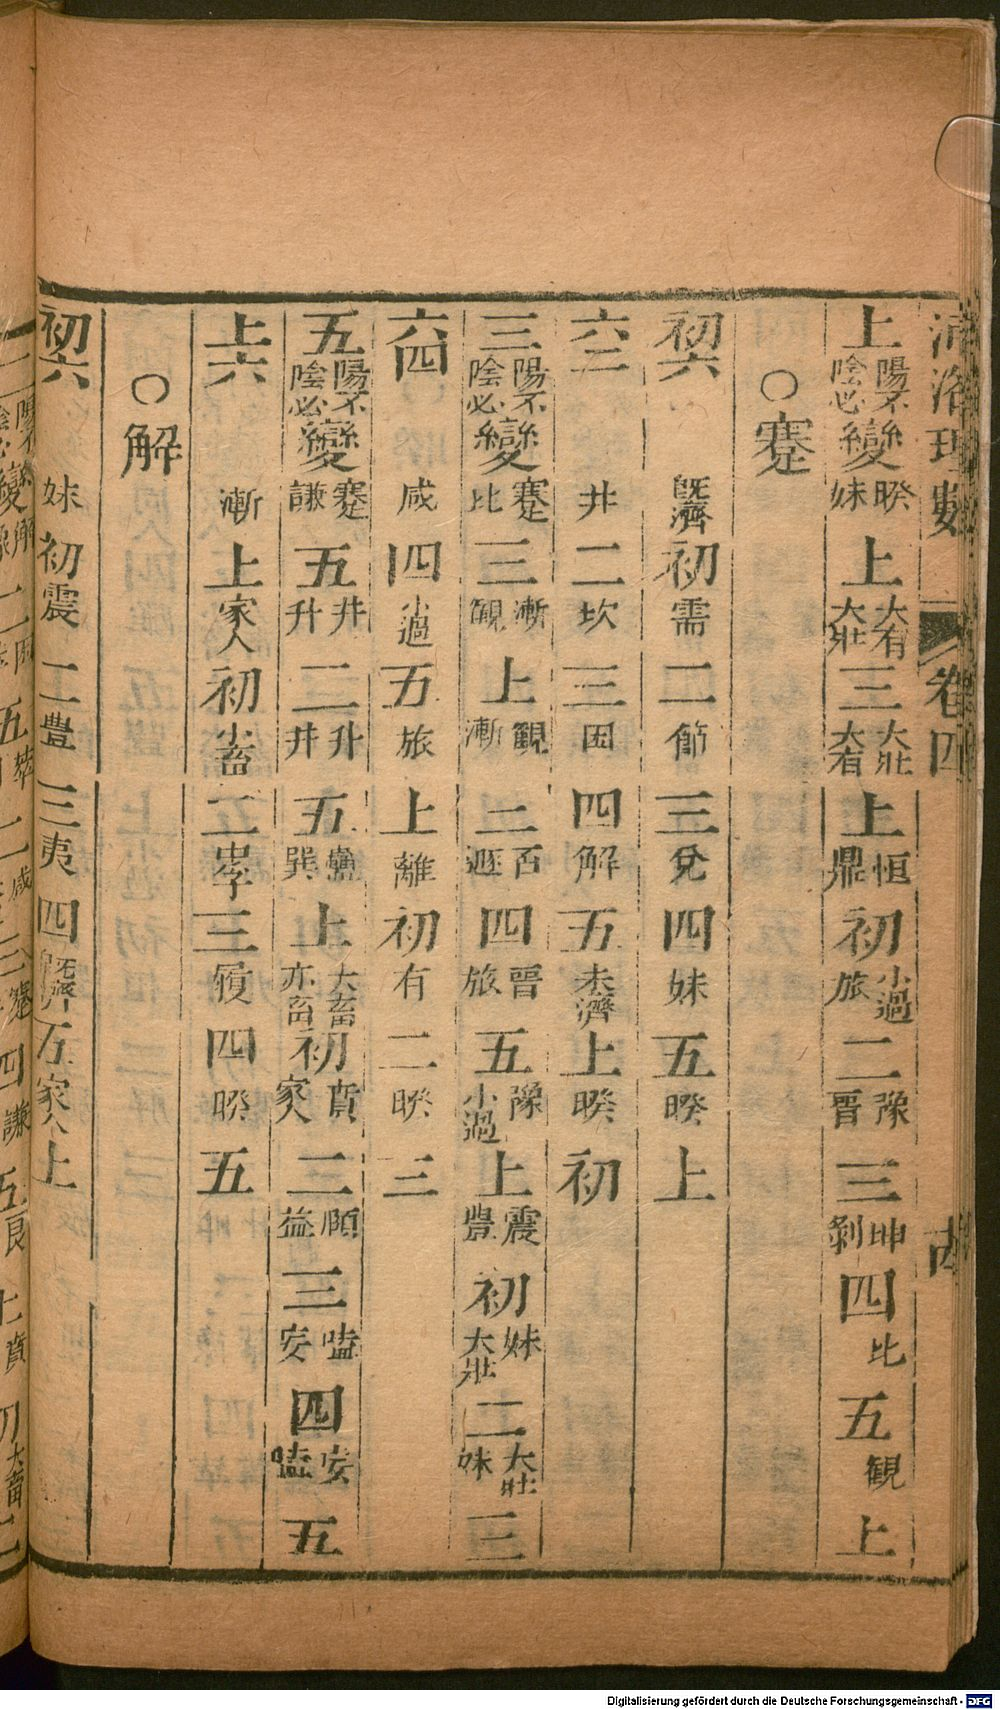 河洛理數 卷四
上 陽不陰必變 睽妹 上 大有大壯 三 大壯大有 上 恒鼎 初 小過旅 二 豫晋 三 坤剝 四 比 五 観 上
○蹇
初六 既濟 初 需 二 節 三 兌 四 妹 五 睽 上
六二 井 二 坎 三 困 四 解 五 未濟 上 睽 初
三 陽不陰必變 蹇比 三 漸観 上 観漸 二 否遯 四 晋旅 五 豫小過 上 震豊 初 妹大壯 二 大壯妹 三
六四 咸 四 小過 五 旅 上 離 初 有 二 睽 三
五 陽不陰必變 蹇謙 五 井升 二 升井 五 蠱巽 上 大畜亦畜 初 賁家人 二 頤益 三 嗑安 四 安嗑 五
上六 漸 上 家人 初 小畜 二 孚 三 履 四 睽 五
○解
初六 妹 初 震 二 豊 三 夷 四 既濟 五 家人 上
Digitalisierung gefördert durch die Deutsche Forschungsgemeinschaft - DFG